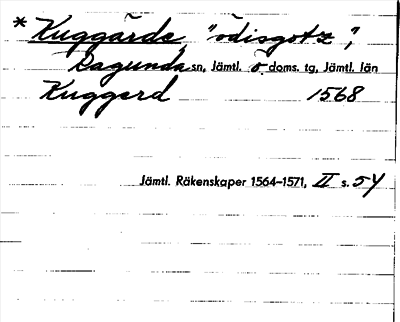 * Kuggärde "ödisgotz",
Ragunda sn, Jämtl. ö doms. tg, Jämtl. län
Kuggerd 1568
Jämtl. Räkenskaper 1564–1571, II s. 54